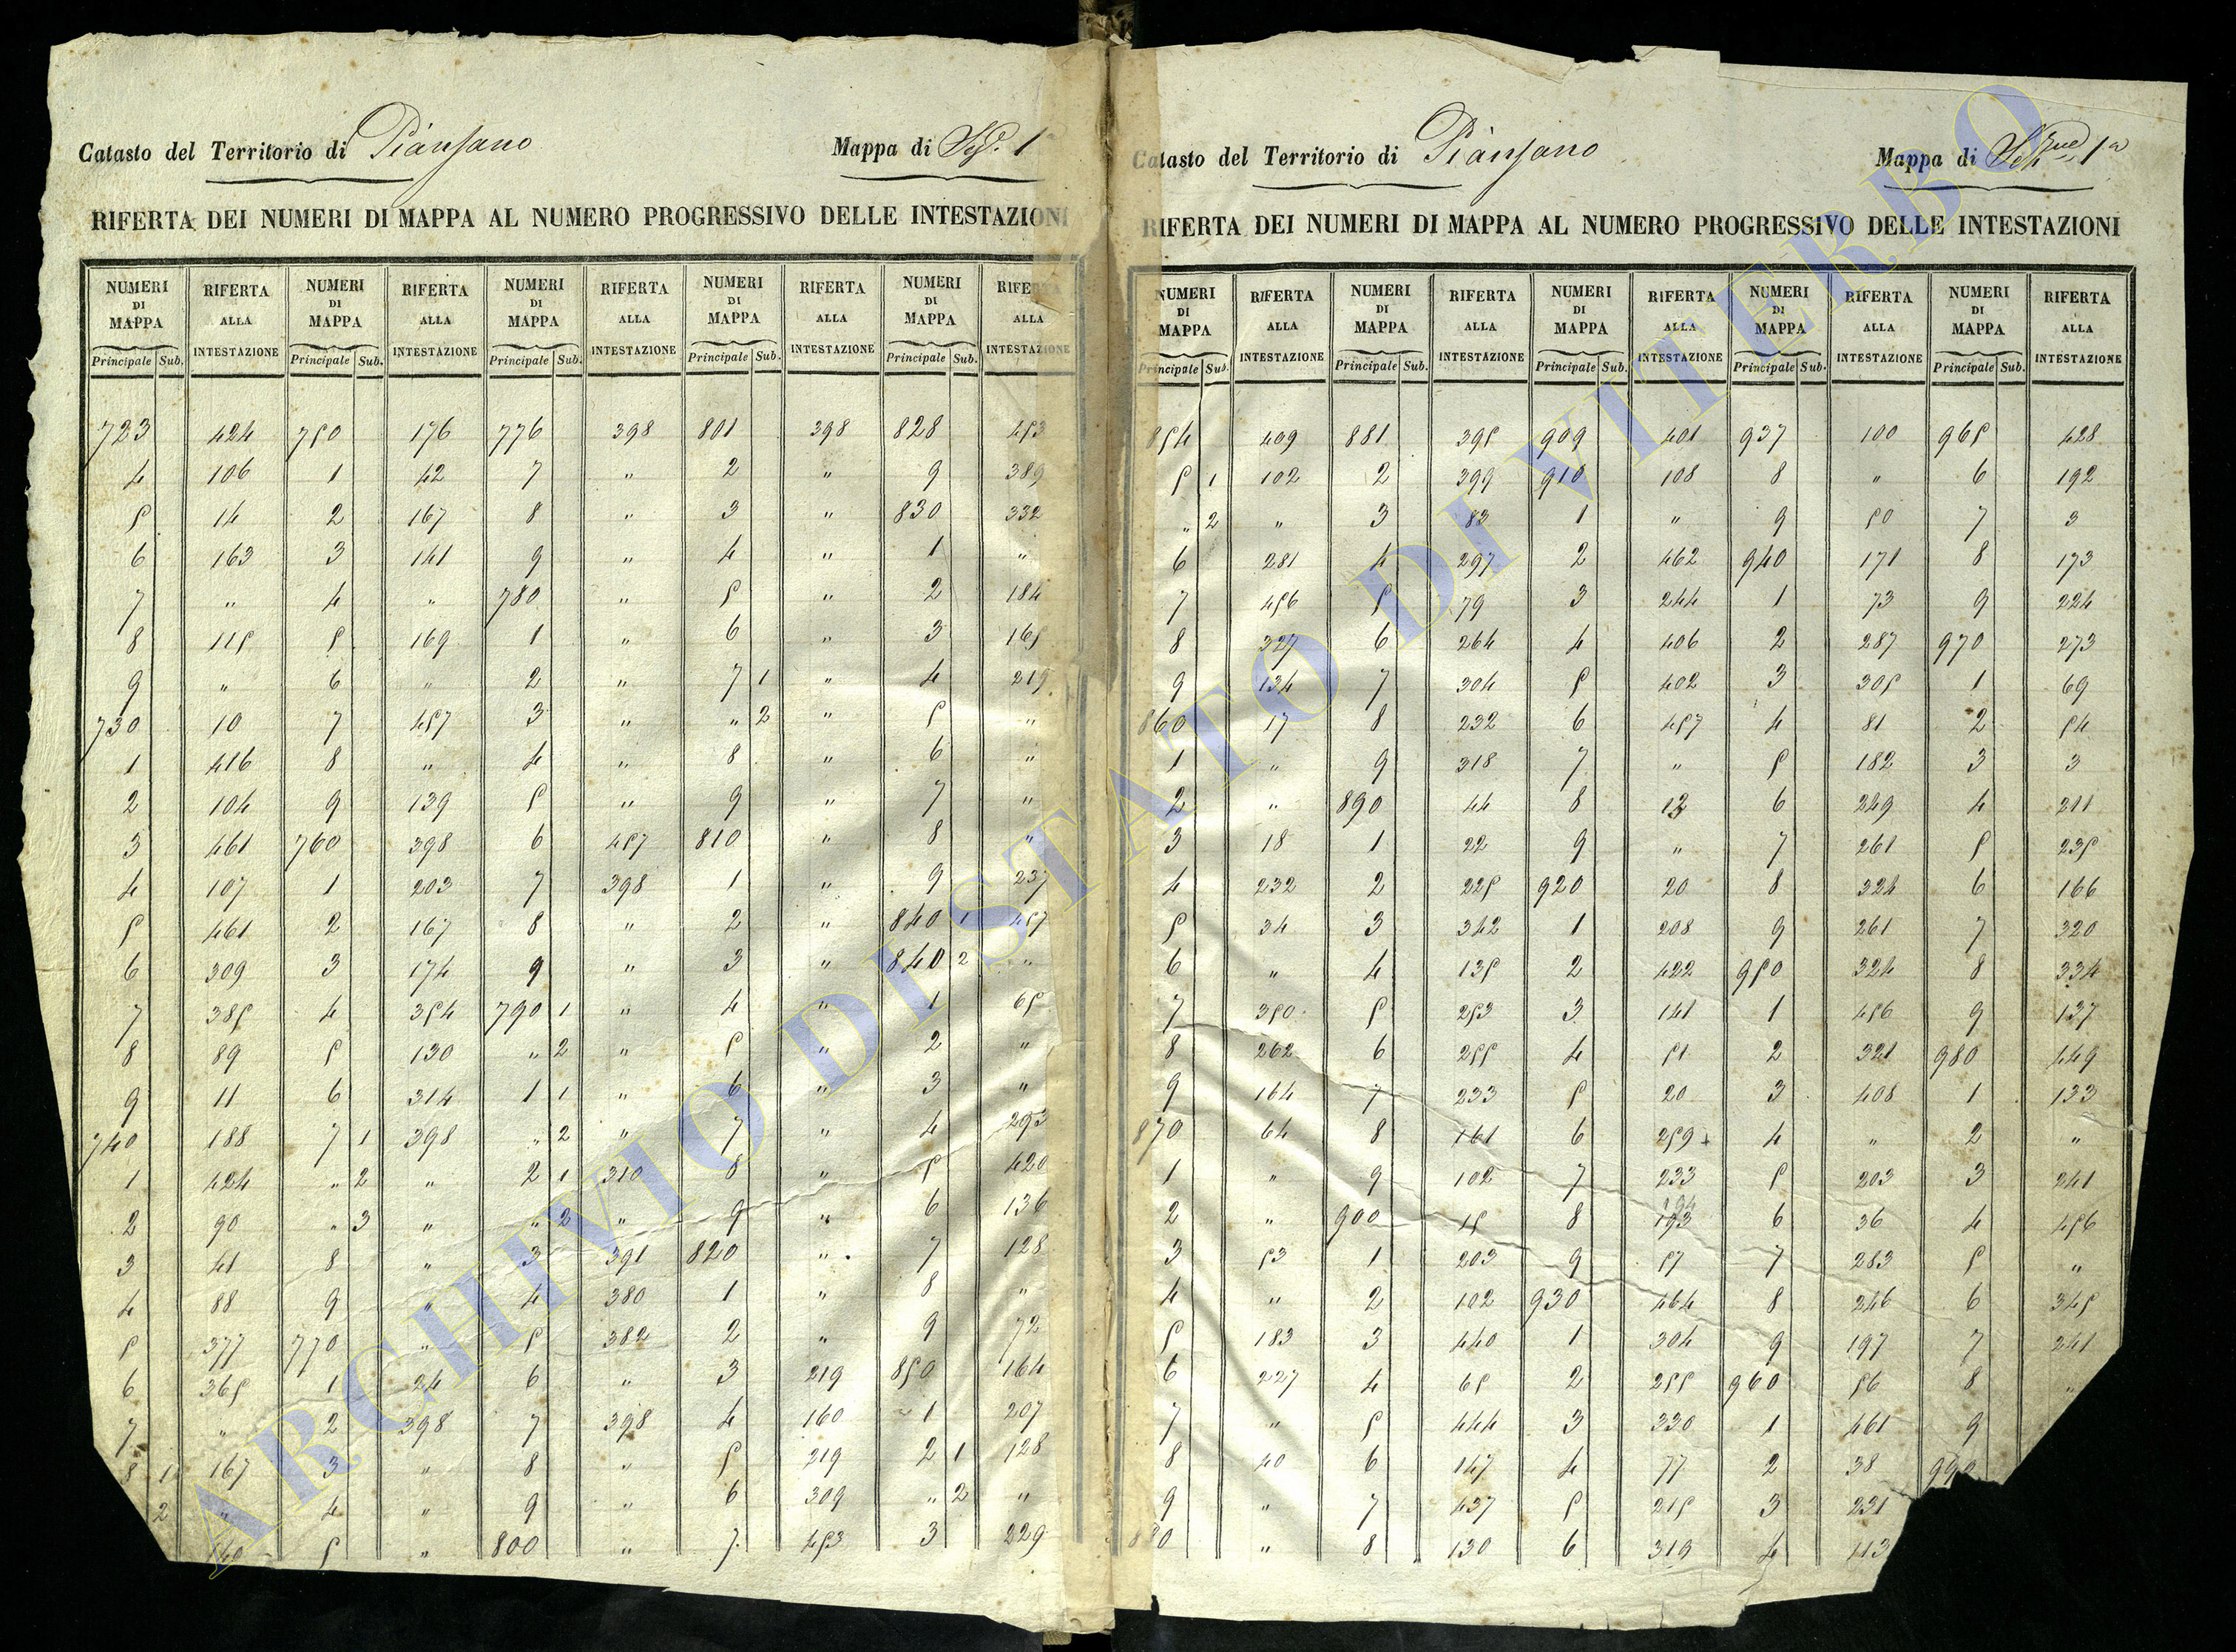 Catasto del Territorio di Piansano Mappa di Sez. 1
RIFERTA DEI NUMERI DI MAPPA AL NUMERO PROGRESSIVO DELLE INTESTAZIONI
NUMERI DI MAPPA RIFERTA ALLA INTESTAZIONE NUMERI DI MAPPA RIFERTA ALLA INTESTAZIONE NUMERI DI MAPPA RIFERTA ALLA INTESTAZIONE NUMERI DI MAPPA RIFERTA ALLA INTESTAZIONE NUMERI DI MAPPA RIFERTA ALLA INTESTAZIONE
Principale Sub. Principale Sub. Principale Sub. Principale Sub. Principale Sub.
723 424 750 176 776 398 801 398 828 453
4 106 1 42 7 " 2 " 9 389
5 14 2 167 8 " 3 " 830 332
6 163 3 141 9 " 4 " 1 "
7 " 4 " 780 " 5 " 2 184
8 115 5 169 1 " 6 " 3 165
9 " 6 " 2 " 7 1 " 4 219
730 10 7 457 3 " " 2 " 5 "
1 416 8 " 4 " 8 " 6 "
2 104 9 139 5 " 9 " 7 "
3 461 760 398 6 457 810 " 8 "
4 107 1 203 7 398 1 " 9 237
5 461 2 167 8 " 2 " 840 1 457
6 309 3 174 9 " 3 " 840 2 "
7 385 4 354 790 1 " 4 " 1 65
8 89 5 130 " 2 " 5 " 2 "
9 11 6 314 1 1 " 6 " 3 "
740 188 7 1 398 " 2 " 7 " 4 293
1 424 " 2 " 2 1 310 8 " 5 420
2 90 " 3 " " 2 " 9 " 6 136
3 41 8 " 3 391 820 " 7 128
4 88 9 " 4 380 1 " 8 "
5 377 770 " 5 382 2 " 9 72
6 365 1 24 6 " 3 219 850 164
7 " 2 398 7 398 4 160 1 207
8 1 167 3 " 8 " 5 219 2 1 128
2 " 4 " 9 " 6 309 " 2 "
140 5 " 800 " 7 453 3 229
Catasto del Territorio di Piansano Mappa di Sezne 1a
RIFERTA DEI NUMERI DI MAPPA AL NUMERO PROGRESSIVO DELLE INTESTAZIONI
NUMERI DI MAPPA RIFERTA ALLA INTESTAZIONE NUMERI DI MAPPA RIFERTA ALLA INTESTAZIONE NUMERI DI MAPPA RIFERTA ALLA INTESTAZIONE NUMERI DI MAPPA RIFERTA ALLA INTESTAZIONE NUMERI DI MAPPA RIFERTA ALLA INTESTAZIONE
Principale Sub. Principale Sub. Principale Sub. Principale Sub. Principale Sub.
854 409 881 395 909 401 937 100 965 428
5 1 102 2 399 910 108 8 " 6 192
" 2 " 3 83 1 " 9 50 7 3
6 281 4 297 2 462 940 171 8 173
7 456 5 79 3 244 1 73 9 224
8 327 6 264 4 406 2 287 970 273
9 134 7 304 5 402 3 305 1 69
860 17 8 232 6 457 4 81 2 54
1 " 9 318 7 " 5 182 3 3
2 " 890 44 8 13 6 249 4 211
3 18 1 22 9 " 7 261 5 235
4 232 2 225 920 20 8 324 6 166
5 34 3 342 1 208 9 261 7 320
6 " 4 135 2 422 950 324 8 334
7 350 5 253 3 141 1 456 9 137
8 262 6 255 4 51 2 321 980 449
9 164 7 233 5 20 3 408 1 133
870 64 8 161 6 259 4 " 2 "
1 " 9 102 7 233 5 203 3 241
2 " 900 15 8 193 194 6 36 4 456
3 53 1 203 9 57 7 283 5 "
4 " 2 102 930 464 8 246 6 345
5 183 3 440 1 304 9 197 7 241
6 227 4 65 2 255 960 56 8 "
7 " 5 444 3 330 1 461 9
8 40 6 147 4 77 2 38 990
9 " 7 437 5 215 3 231
880 " 8 130 6 319 4 113
ARCHIVIO DI STATO DI VITERBO